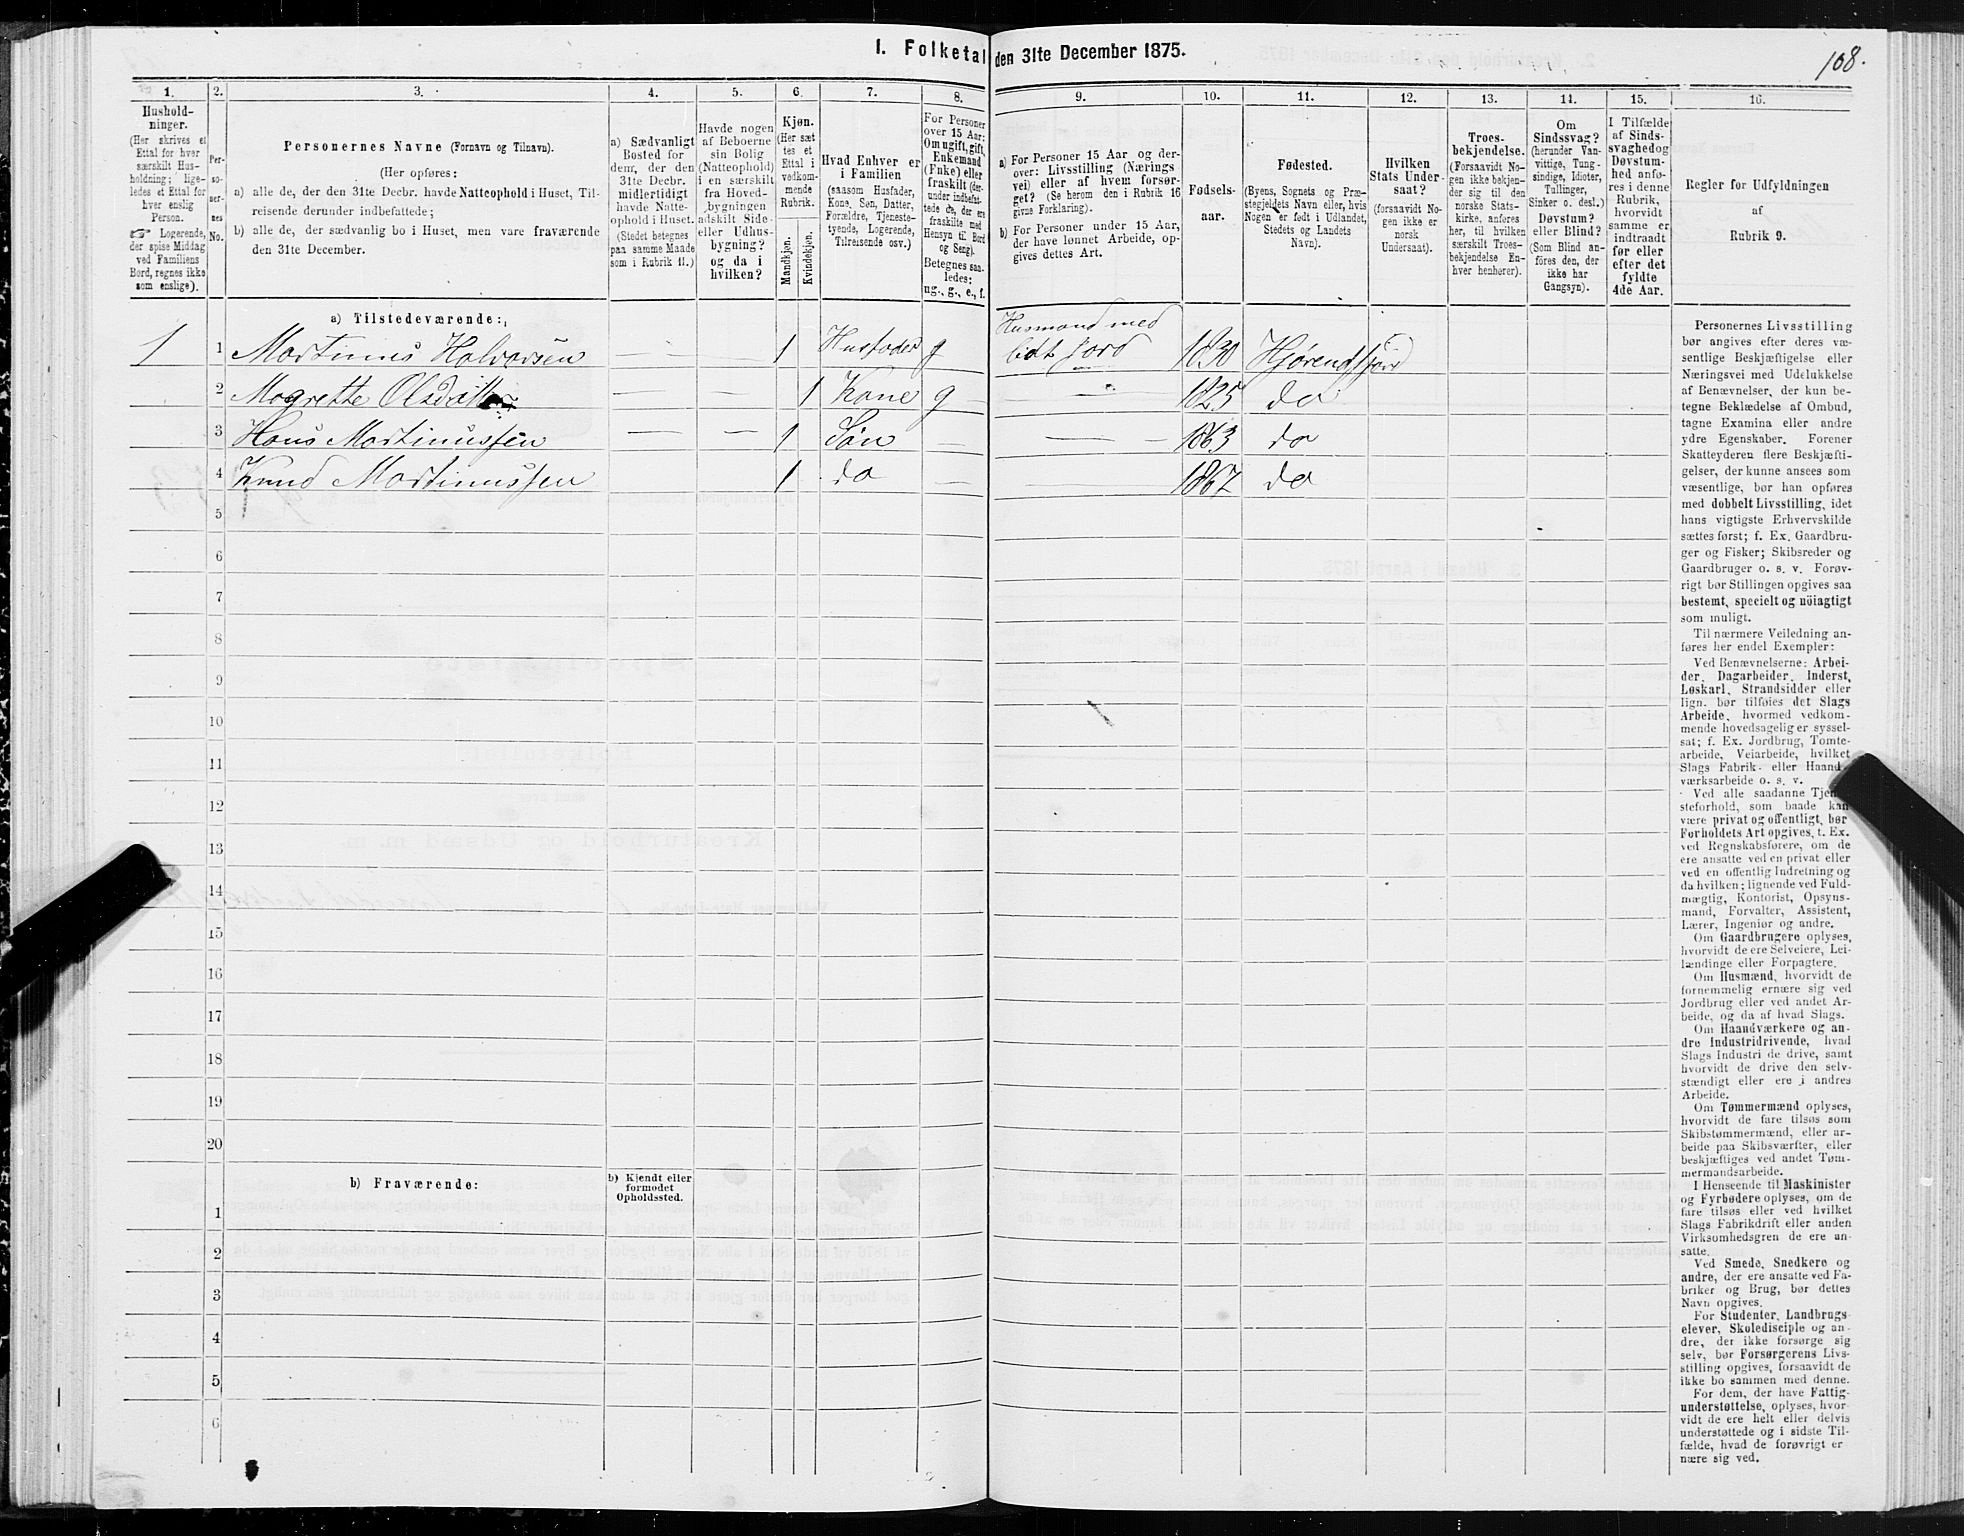 1. Folketal den 31te December 1875.
108.
1. 2. 3. 4. 5. 6. 7. 8. 9. 10. 11. 12. 13. 14. 15. 16.
Hushold-
ninger.
(Her skrives et
Ettal for hver
særskilt Hus-
holdning; lige-
ledes et Ettal for
hver enslig
Person.
☞ Logerende,
der spise Middag
ved Familiens
Bord, regnes ikke
som enslige).
Per-
so-
ner-
nes
No.
Personernes Navne (Fornavn og Tilnavn).
(Her opføres:
a) alle de, der den 31te Decbr. havde Natteophold i Huset, Til-
reisende derunder indbefattede;
b) alle de, der sædvanlig bo i Huset, men vare fraværende
den 31te December.
a) Sædvanligt
Bosted for
dem, der den
31te Decbr.
midlertidigt
havde Natte-
ophold i Huset.
(Stedet betegnes
paa samme Maade
som i Rubrik 11.)
Havde nogen
af Beboerne
sin Bolig
(Natteophold)
i en særskilt
fra Hoved-
bygningen
adskilt Side-
eller Udhus-
bygning?
og da i
hvilken?
Kjøn.
(Her sæt-
tes et
Ettal i
vedkom-
mende
Rubrik.
Mandkjøn.
Kvindekjøn.
Hvad Enhver er
i Familien
(saasom Husfader,
Kone, Søn, Datter,
Forældre, Tjeneste-
tyende, Logerende,
Tilreisende osv.)
For Personer
over 15 Aar:
Om ugift, gift,
Enkemand
(Enke) eller
fraskilt (der-
under indbefat-
tede de, der ere
fraskilte med
Hensyn til Bord
og Seng).
Betegnes saa-
ledes:
ug., g., e., f.
a) For Personer 15 Aar og der-
over: Livsstilling (Nærings
vei) eller af hvem forsør-
get? (Se herom den i Rubrik 16
givne Forklaring).
b) For Personer under 15 Aar,
der have lønnet Arbeide, op-
gives dettes Art.
Fødsels-
aar.
Fødested.
(Byens, Sognets og Præ-
stegjeldets Navn eller, hvis
Nogen er født i Udlandet,
Stedets og Landets
Navn).
Hvilken
Stats Under-
saat?
(forsaavidt No-
gen ikke er
norsk
Undersaat).
Troes-
bekjendelse.
(Forsaavidt No-
gen ikke bekjen-
der sig til den
norske Stats-
kirke, anføres
her, til hvilken
særskilt Troes-
bekjendelse En-
hver henhører).
Om
Sindssvag?
(herunder Van-
vittige, Tung-
sindige, Idioter,
Tullinger,
Sinker o. desl.)
Døvstum?
eller Blind?
(Som Blind an-
føres den, der
ikke har
Gangsyn).
I Tilfælde
af Sinds-
svaghed og
Døvstum-
hed anfø-
res i denne
Rubrik,
hvorvidt
samme er
indtraadt
før eller
efter det
fyldte
4de Aar.
Regler for Udfyldningen
af
Rubrik 9.
a) Tilstedeværende:
1 1 Martinus Halvorsen — — 1 Husfader g Husmand med lidt Jord 1830 Hjørendfjord
2 Magrette Olsdatter — — 1 Kone g — " — 1825 do
3 Hans Martinussen — — 1 Søn — — — 1863 do
4 Knud Martinussen 1 do — — 1867 do
5
6
7
8
9
10
11
12
13
14
15
16
17
18
19
20
b) Fraværende:
b) Kjendt eller
formodet
Opholdssted.
1
2
3
4
5
6
Personernes Livsstilling
bør angives efter deres væ-
sentlige Beskjæftigelse eller
Næringsvei med Udelukkelse
af Benævnelser, der kun be-
tegne Beklædelse af Ombud,
tagne Examina eller andre
ydre Egenskaber. Forener
Skatteyderen flere Beskjæfti-
gelser, der kunne ansees som
væsentlige, bør han opføres
med dobbelt Livsstilling, idet
hans vigtigste Erhvervskilde
sættes først; f. Ex. Gaardbru-
ger og Fisker; Skibsreder og
Gaardbruger o. s. v. Forøv-
rigt bør Stillingen opgives saa
bestemt, specielt og nöiagtigt
som muligt.
Til nærmere Veiledning an-
føres her endel Exempler:
Ved Benævnelserne: Arbei-
der, Dagarbeider, Inderst,
Løskarl, Strandsidder eller
lign. bør tilføies det Slags
Arbeide, hvormed vedkom-
mende hovedsagelig er syssel-
sat; f. Ex. Jordbrug, Tomte-
arbeide, Veiarbeide, hvilket
Slags Fabrik- eller Haand-
værksarbeide o. s. v.
Ved alle saadanne Tjene-
steforhold, som baade kan
være privat og offentligt, bør
Forholdets Art opgives, t. Ex.
ved Regnskabsførere, om de
ere ansatte ved en privat eller
ved en offentlig Indretning og
da hvilken; lignende ved Fuld-
mægtig, Kontorist, Opsyns-
mand, Forvalter, Assistent,
Lærer, Ingeniør og andre.
Om Gaardbrugere oplyses,
hvorvidt de ere Selveiere, Lei-
lændinge eller Forpagtere.
Om Husmænd, hvorvidt de
fornemmelig ernære sig ved
Jordbrug eller ved andet Ar-
beide, og da af hvad Slags.
Om Haandværkere og an-
dre Industridrivende, hvad
Slags Industri de drive, samt
hvorvidt de drive den selv-
stændigt eller ere i andres
Arbeide.
Om Tømmermænd oplyses,
hvorvidt de fare tilsøs som
Skibstømmermænd, eller ar-
beide paa Skibsværfter, eller
beskjæftiges ved andet Tøm-
mermandsarbeide.
I Henseende til Maskinister
og Fyrbødere oplyses, om de
fare tilsøs eller ved hvilket
Slags Fabrikdrift eller anden
Virksomhedsgren de ere an-
satte.
Ved Smede, Snedkere og
andre, der ere ansatte ved Fa-
briker og Brug, bør dettes
Navn opgives.
For Studenter, Landbrugs-
elever, Skoledisciple og an-
dre, der ikke forsørge sig
selv, bør Forsørgerens Livs-
stilling opgives, forsaavidt de
ikke bo sammen med denne.
For dem, der have Fattig-
understøttelse, oplyses, hvor-
vidt de ere helt eller delvis
understøttede og i sidste Til-
fælde, hvad de forøvrigt er
nære sig ved.